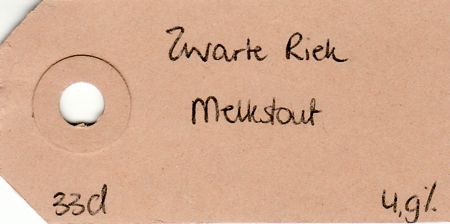 Zwarte Riek
Melkstout
33cl 4,9%